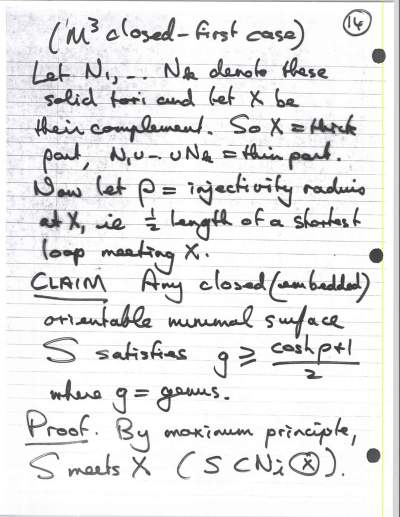 14
(M³ closed - first case)
Let N₁, ... Nk denote these
solid tori and let X be
their complement. So X = thick
part, N₁ ∪ ... ∪ Nk = thin part.
Now let ρ = injectivity radius
at X, ie ½ length of a shortest
loop meeting X.
CLAIM Any closed (embedded)
orientable minimal surface
S satisfies g ⩾ (cosh ρ + 1)/2
where g = genus.
Proof. By maximum principle,
S meets X (S ⊂ Nᵢ ⓧ).